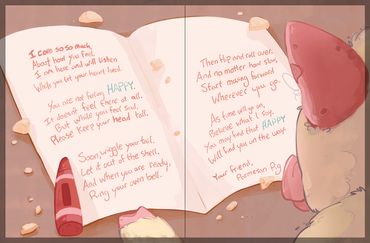 I care so so much,
About how you feel.
I am here and will listen
While you let your heart heal.
You are not feeling HAPPY.
It doesn't feel there at all.
But while you feel sad,
Please keep your head tall.
Soon, wiggle your tail,
Let it out of the shell.
And when you are ready,
Ring your own bell.
Then flip and roll over,
And no matter how slow,
Start moving forward
Wherever you go.
As time will go on,
Believe what I say,
You may find that HAPPY
Will find you on the way.
Your friend,
Parmesan Pig